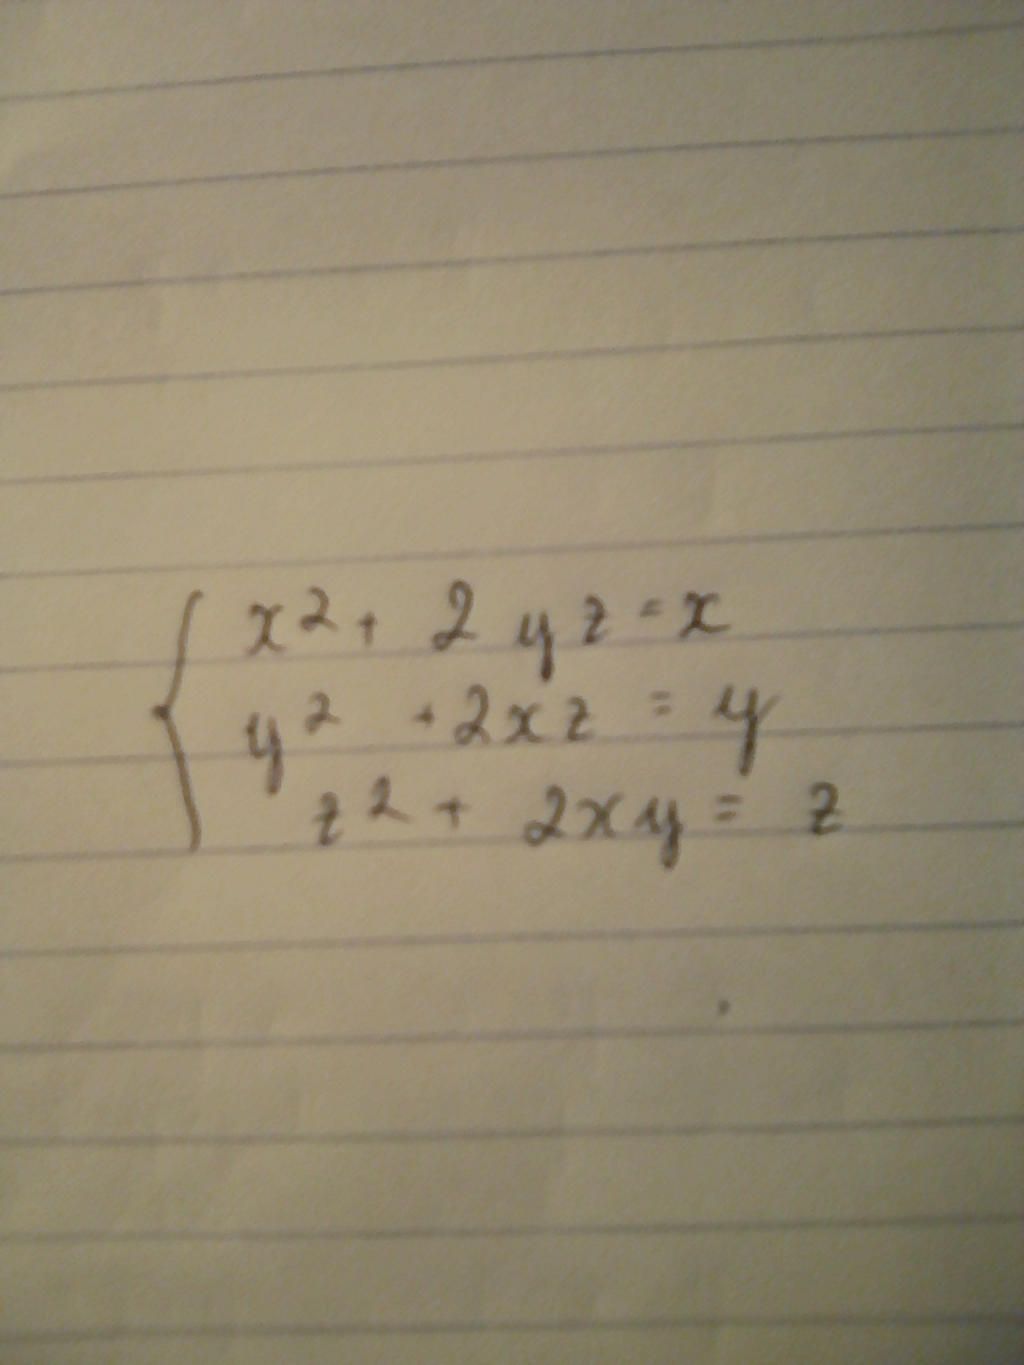 x² + 2yz = x
y² + 2xz = y
z² + 2xy = z